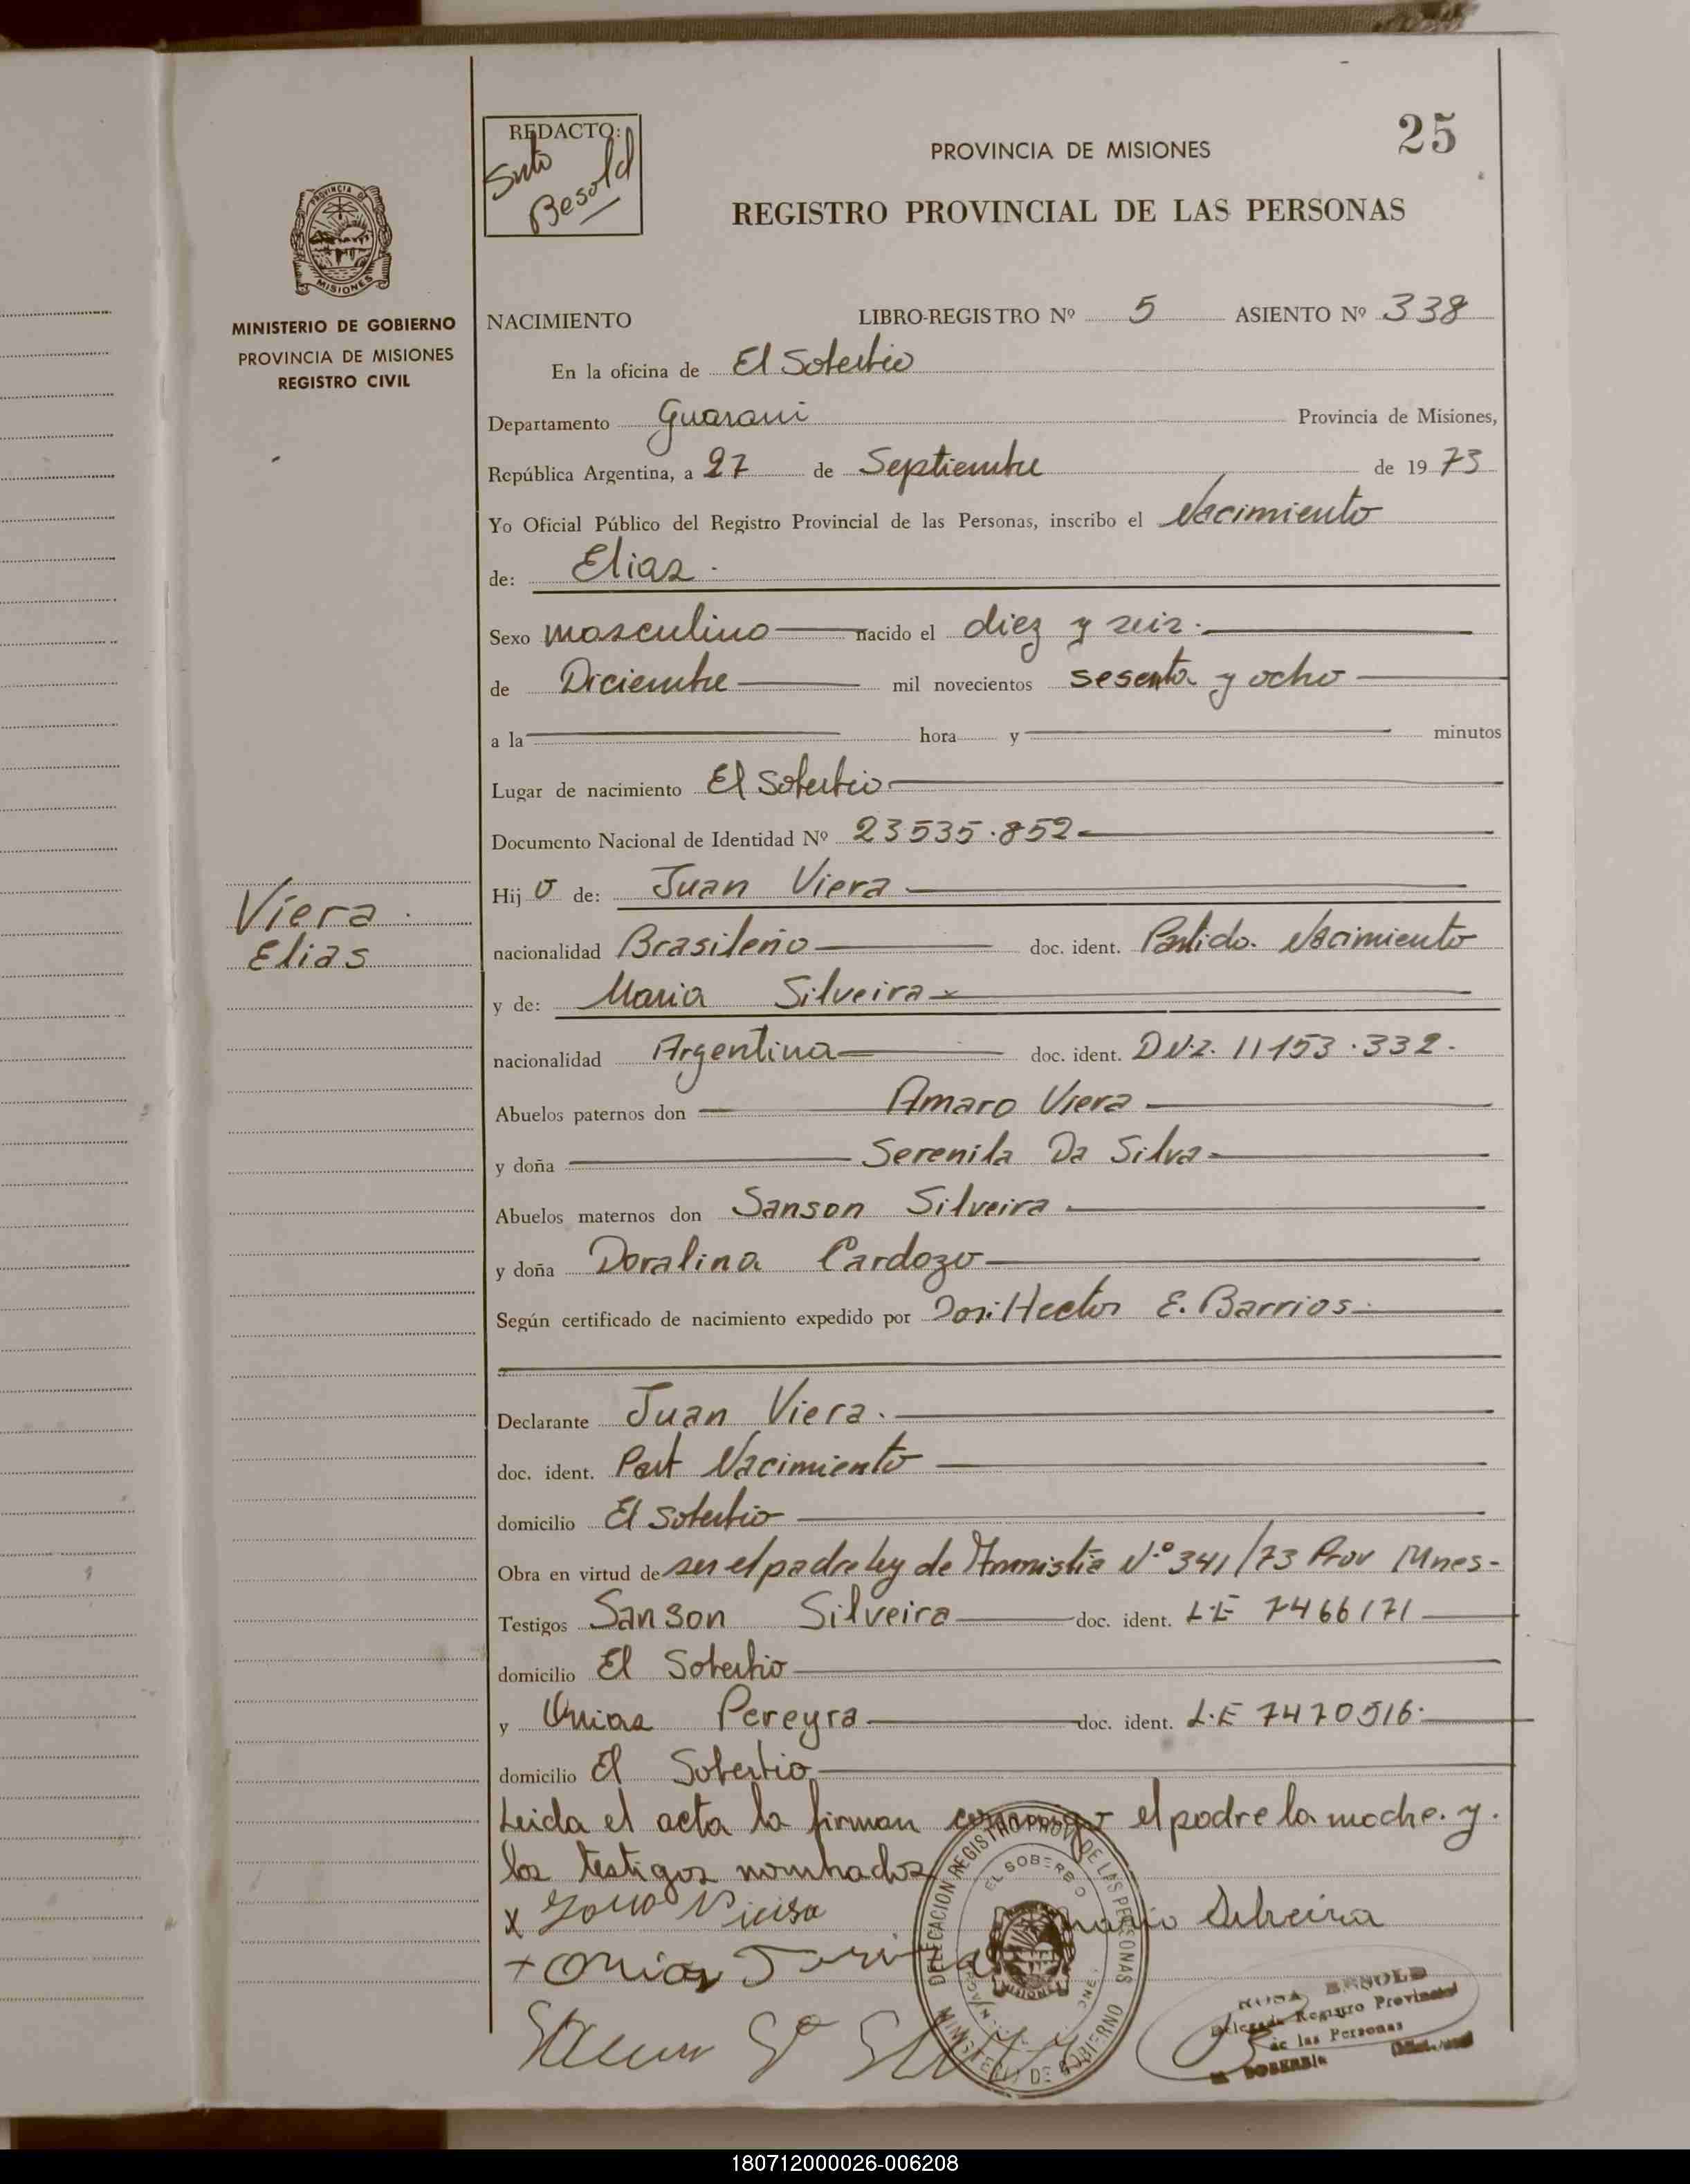 25
REDACTO:
Besold
PROVINCIA DE MISIONES
REGISTRO PROVINCIAL DE LAS PERSONAS
PROVINCIA DE
MISIONES
MINISTERIO DE GOBIERNO
PROVINCIA DE MISIONES
REGISTRO CIVIL
NACIMIENTO LIBRO-REGISTRO Nº 5 ASIENTO Nº 338
En la oficina de El Soberbio
Departamento Guarani Provincia de Misiones,
República Argentina, a 27 de Septiembre de 1973
Yo Oficial Público del Registro Provincial de las Personas, inscribo el Nacimiento
de: Elias.
Sexo masculino nacido el diez y seis.
de Diciembre mil novecientos sesenta y ocho
a la hora y minutos
Lugar de nacimiento El Soberbio
Documento Nacional de Identidad Nº 23535.852
Viera
Elias
Hijo de: Juan Viera
nacionalidad Brasileño doc. ident. Partida. Nacimiento
y de: Maria Silveira
nacionalidad Argentina doc. ident. D.N.I. 11153.332.
Abuelos paternos don Amaro Viera
y doña Serenila Da Silva
Abuelos maternos don Sanson Silveira
y doña Doralina Cardozo
Según certificado de nacimiento expedido por Hector E. Barrios
Declarante Juan Viera.
doc. ident. Part Nacimiento
domicilio El Soberbio
Obra en virtud de ser el padre ley de Amnistia N.º 341/73 Prov Mnes-
Testigos Sanson Silveira doc. ident. L.E 7466171
domicilio El Soberbio
y Pereyra doc. ident. L.E 7470516.
domicilio El Soberbio
Leida el acta la firman conmigo el padre la madre. y.
los testigos nombrados
DELEGACION REGISTRO PROV. DE LAS PERSONAS
EL SOBERBIO
MISIONES
MINISTERIO DE GOBIERNO
Silveira
BESOLD
Delegada Registro Provincial
de las Personas
EL SOBERBIO
180712000026-006208